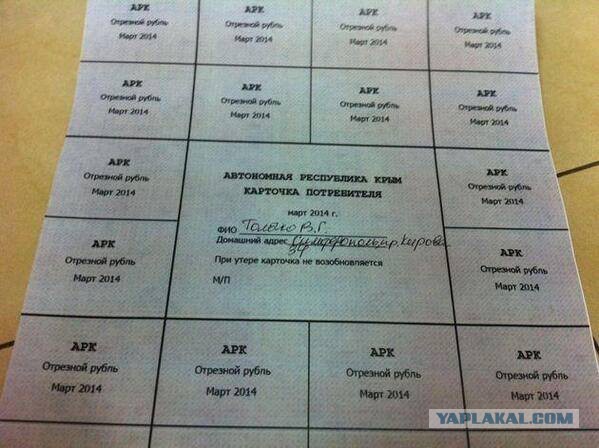 АРК
Отрезной рубль
Март 2014
АРК
Отрезной рубль
Март 2014
АРК
Отрезной рубль
Март 2014
АРК
Отрезной рубль
Март 2014
АРК
Отрезной рубль
Март 2014
АРК
Отрезной рубль
Март 2014
АРК
Отрезной рубль
Март 2014
АРК
Отрезной рубль
Март 2014
АРК
Отрезной рубль
Март 2014
АВТОНОМНАЯ РЕСПУБЛИКА КРЫМ
КАРТОЧКА ПОТРЕБИТЕЛЯ
март 2014 г.
ФИО В.Г.
Домашний адрес Симферополь пр. Кирова
При утере карточка не возобновляется
М/П
АРК
Отрезной рубль
Март 2014
АРК
Отрезной рубль
Март 2014
АРК
Отрезной рубль
Март 2014
АРК
Отрезной рубль
Март 2014
АРК
Отрезной рубль
Март 2014
АРК
Отрезной рубль
Март 2014
АРК
Отрезной рубль
Март 2014
YAPLAKAL.COM